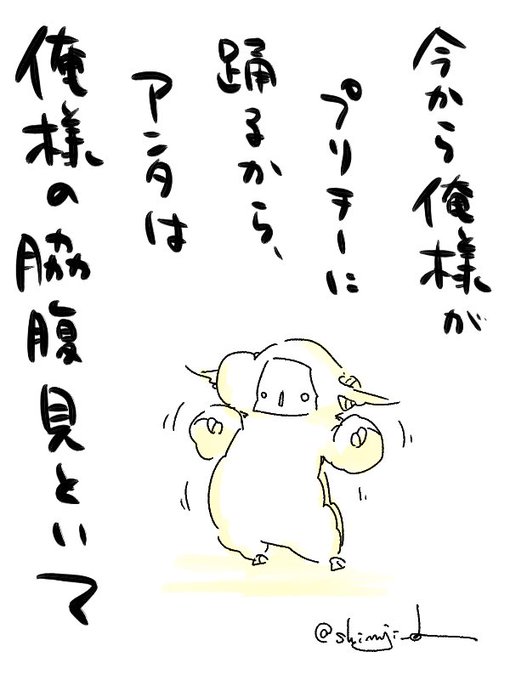 今から俺様が
プリチーに
踊るから、
アンタは
俺様の脇腹見といて